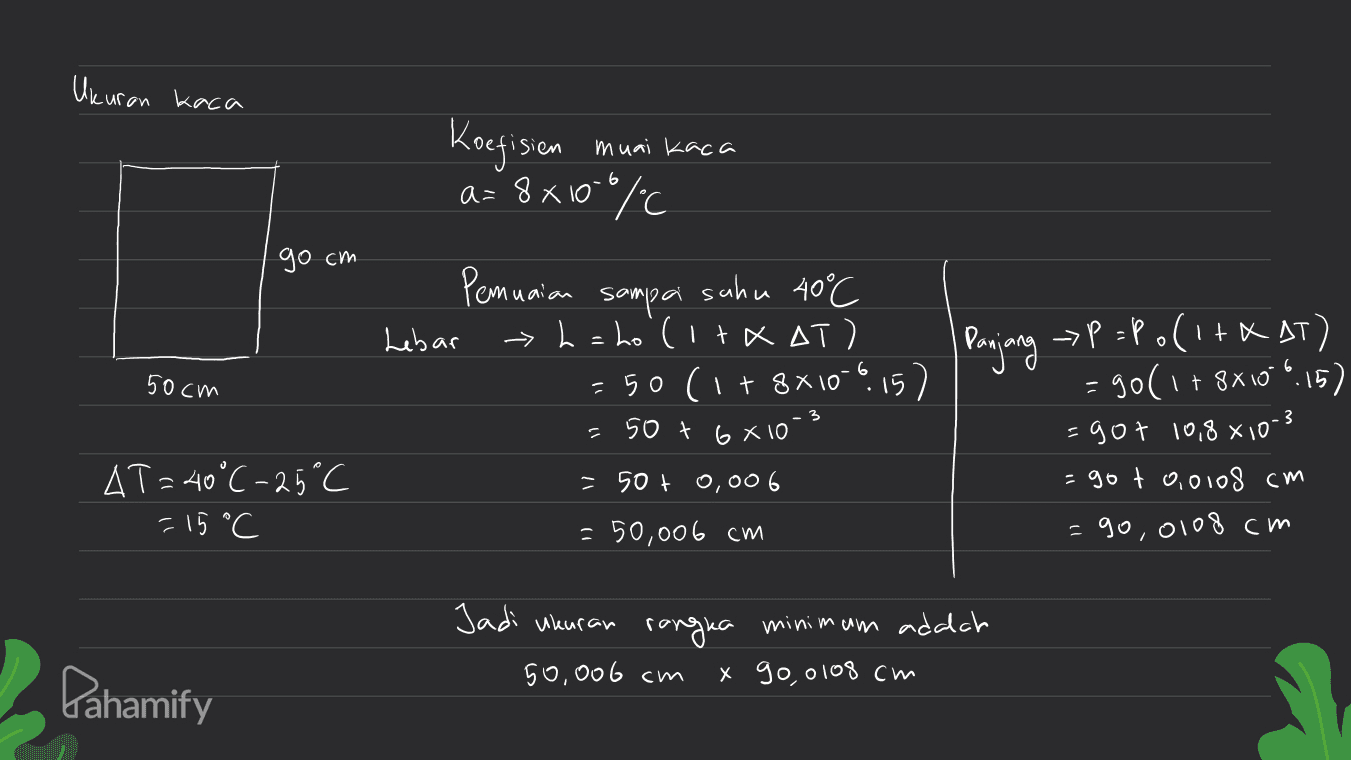 Ukuran kaca
90 cm
50 cm
ΔT = 40°C - 25°C
= 15 °C
Koefisien muai kaca
a = 8 × 10⁻⁶/°C
Pemuaian sampai suhu 40°C
Lebar → L = Lo (1 + α ΔT)
= 50 (1 + 8×10⁻⁶. 15)
= 50 + 6 × 10⁻³
= 50 + 0,006
= 50,006 cm
Panjang → P = Po (1 + α ΔT)
= 90 (1 + 8×10⁻⁶. 15)
= 90 + 10,8 × 10⁻³
= 90 + 0,0108 cm
= 90,0108 cm
Jadi ukuran rangka minimum adalah
50,006 cm x 90,0108 cm
Pahamify